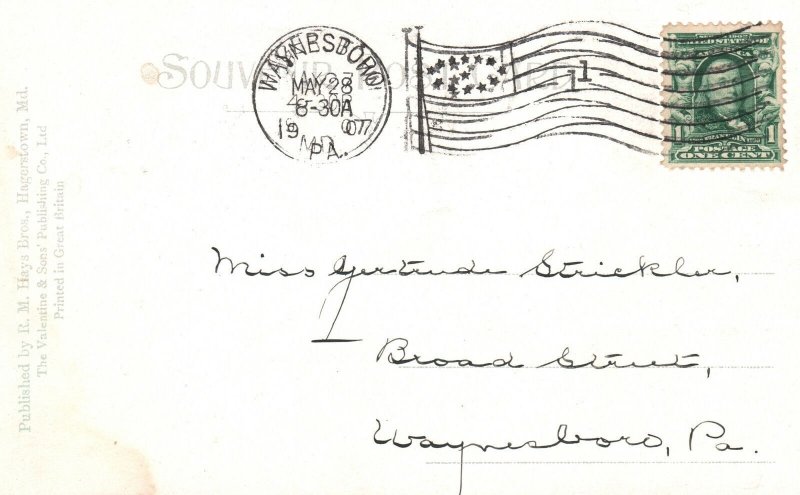 SOUVENIR POST CARD
WAYNESBORO
MAY 28
8-30A
1907
PA.
1
SERIES 1902
UNITED STATES OF
AMERICA
1 FRANKLIN 1
POSTAGE
ONE CENT
Miss Gertrude Strickler,
Broad Street,
Waynesboro, Pa.
Published by R. M. Hays Bros., Hagerstown, Md.
The Valentine & Sons' Publishing Co., Ltd
Printed in Great Britain